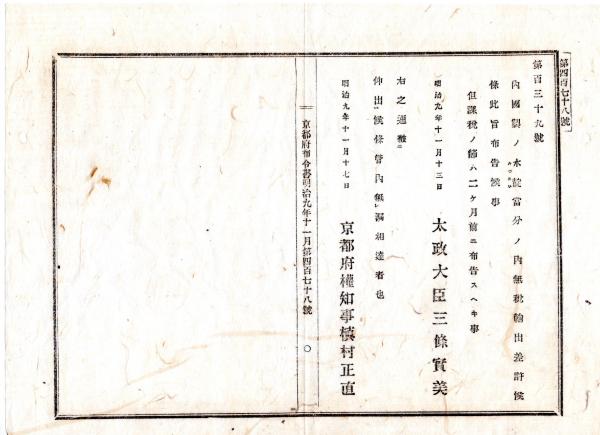 第四百七十八號
第百三十九號
內國製ノ水靛當分ノ內無稅輸出差許候
條此旨布告候事
但課稅ノ節ハ二ケ月前ニ布告スヘキ事
明治九年十一月十三日
太政大臣三條實美
右之通
仰出候條管內無漏相達者也
明治九年十一月十七日
京都府權知事槙村正直
京都府布令書明治九年十一月第四百七十八號